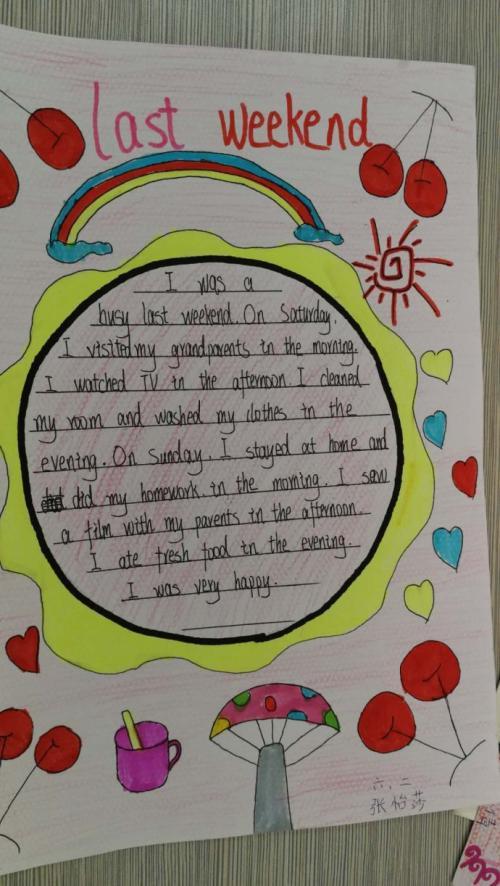 last weekend
I was a
busy last weekend. On Saturday,
I visited my grandparents in the morning.
I watched TV in the afternoon. I cleaned
my room and washed my clothes in the
evening. On Sunday, I stayed at home and
did my homework in the morning. I saw
a film with my parents in the afternoon.
I ate fresh food in the evening.
I was very happy.
六、二
张怡莎